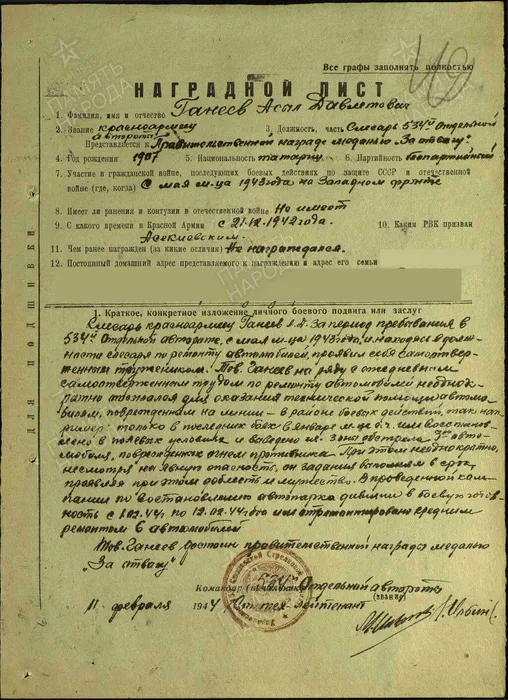 Все графы заполнять полностью
НАГРАДНОЙ ЛИСТ
1. Фамилия, имя и отчество Ганеев Асыл Давлетович
2. Звание красноармеец 3. Должность, часть Слесарь 534й Отдельной
автороты.
Представляется к Правительственной награде медалью "За отвагу".
4. Год рождения 1907 5. Национальность татарин 6. Партийность Беспартийный
7. Участие в гражданской войне, последующих боевых действиях по защите СССР и отечественной
войне (где, когда) С мая м-ца 1943 года на Западном фронте
8. Имеет ли ранения и контузии в отечественной войне Не имеет
9. С какого времени в Красной Армии с 21.12.1942 года. 10. Каким РВК призван
11. Чем ранее награжден (за какие отличия) Не награждался.
12. Постоянный домашний адрес представляемого к награждению и адрес его семьи
1. Краткое, конкретное изложение личного боевого подвига или заслуг
Слесарь красноармеец Ганеев А.Д. За период пребывания в
534й Отдельной автороте, с мая м-ца 1943 года, и находясь в долж-
ности слесаря по ремонту автомобилей, проявил себя самоотвер-
женным тружеником. Тов. Ганеев на ряду с ежедневным
самоотверженным трудом по ремонту автомобилей неоднок-
ратно для оказания технической помощи автомо-
билям, поврежденным на линии – в районе боевых действий, так нап-
ример: только в последних боях в Январе м-це с/г. им восстанов-
лено в полевых условиях и выведено из зоны обстрела 7 авто-
мобиля, поврежденных огнем противника. При этом неоднократно,
несмотря на явную опасность, он задания выполнял в срок,
проявляя при этом доблесть и мужество. В проведенной кам-
пании по востановлению автопарка дивизии в боевую готов-
ность с 1.02.44г. по 12.02.44г. им отремонтировано средним
ремонтом 6 автомобилей
Тов. Ганеев достоин правительственной награды медалью
"За отвагу"
Командир (начальник) 534й Отдельной автороты
(звание)
11 февраля 1944 техн-лейтенант
ДЛЯ ПОДШИВКИ
ПАМЯТЬ НАРОДА